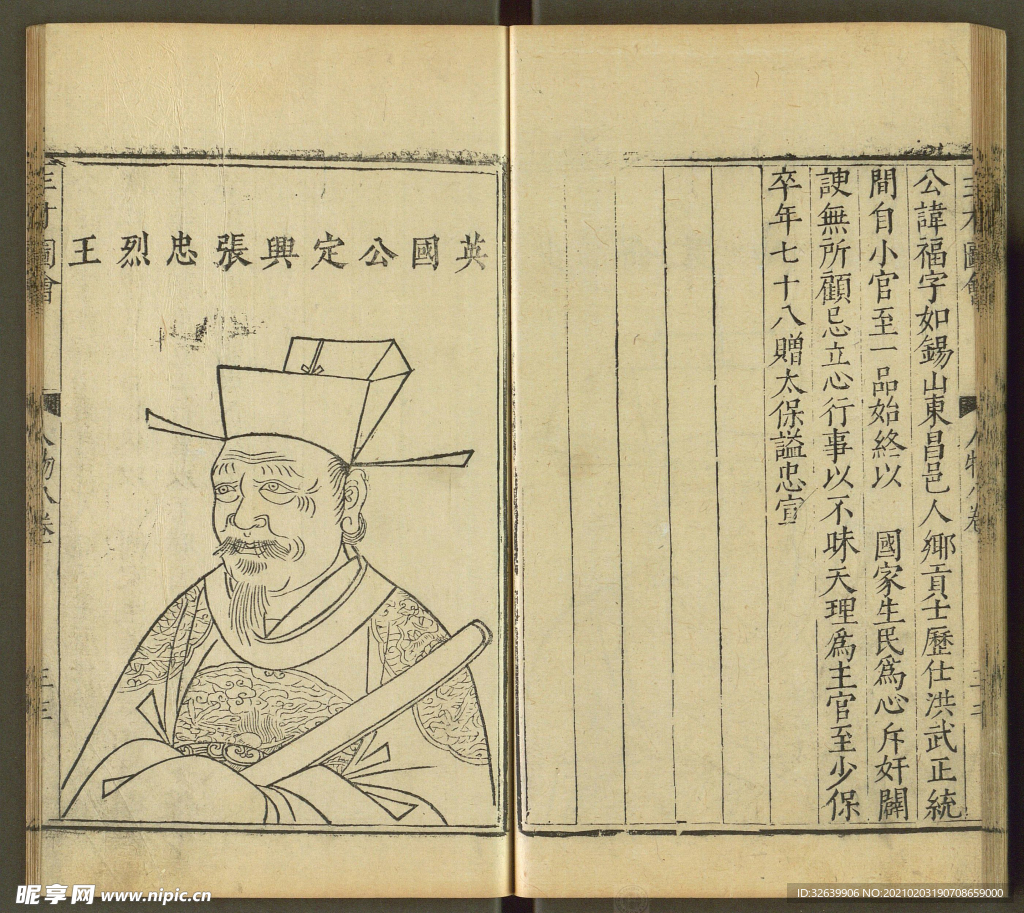 公諱福字如錫山東昌邑人鄉貢士歷仕洪武正統
間自小官至一品始終以　國家生民為心斥奸闢
諛無所顧忌立心行事以不昧天理爲主官至少保
卒年七十八贈太保謚忠宣
三才圖會
人物八卷
英國公定興張忠烈王
三才圖會
人物八卷
三三
昵享网 www.nipic.cn
ID:32639906 NO:20210203190708659000